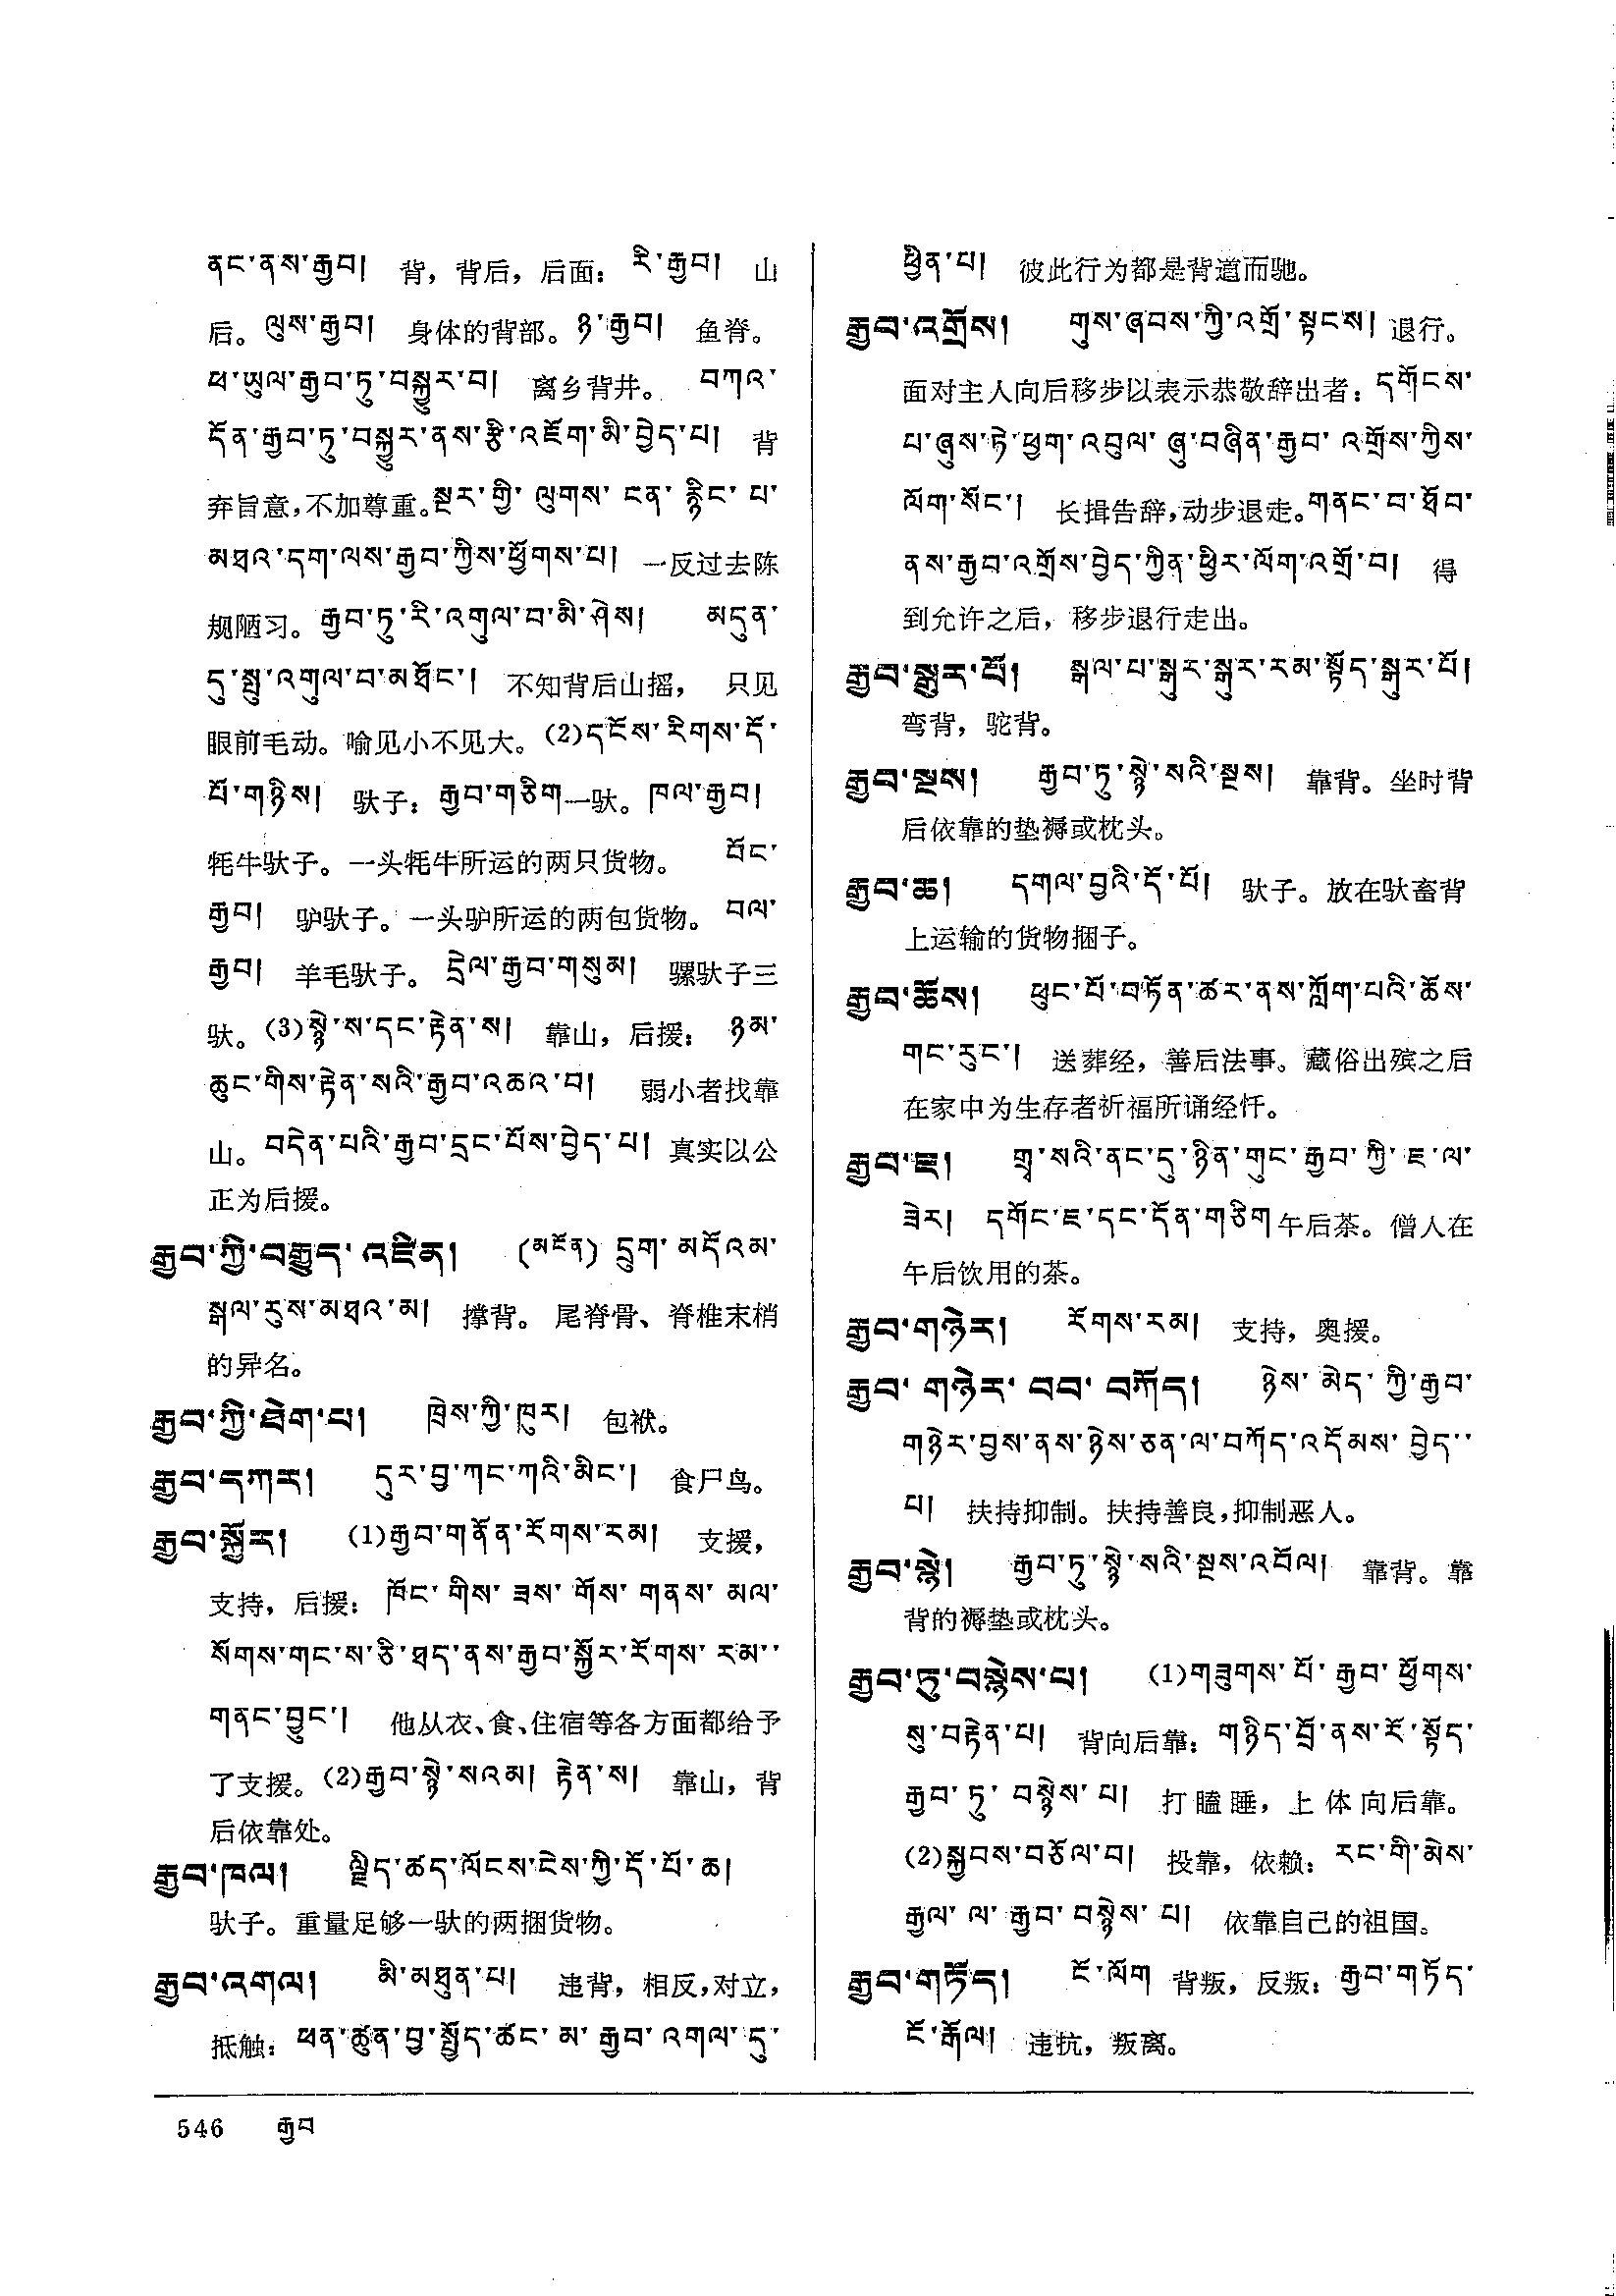 ནང་ནས་རྒྱབ། 背，背后，后面：རི་རྒྱབ། 山
后。ལུས་རྒྱབ། 身体的背部。ཉ་རྒྱབ། 鱼脊。
ཕ་ཡུལ་རྒྱབ་ཏུ་བསྐྱུར་བ། 离乡背井。 བཀའ་
དོན་རྒྱབ་ཏུ་བསྐྱུར་ནས་རྩི་འཇོག་མི་བྱེད་པ། 背
弃旨意，不加尊重。སྔར་གྱི་ ལུགས་ ངན་ རྙིང་ པ་
མཐའ་དག་ལས་རྒྱབ་ཀྱིས་ཕྱོགས་པ། 一反过去陈
规陋习。རྒྱབ་ཏུ་རི་འགུལ་བ་མི་ཤེས། མདུན་
དུ་སྤུ་འགུལ་བ་མཐོང་། 不知背后山摇， 只见
眼前毛动。喻见小不见大。(2)དངོས་རིགས་དོ་
པོ་གཉིས། 驮子：རྒྱབ་གཅིག一驮。ཁལ་རྒྱབ།
牦牛驮子。一头牦牛所运的两只货物。 བོང་
རྒྱབ། 驴驮子。一头驴所运的两包货物。 བལ་
རྒྱབ། 羊毛驮子。 དྲེལ་རྒྱབ་གསུམ། 骡驮子三
驮。(3)སྙེ་ས་དང་རྟེན་ས། 靠山，后援： ཉམ་
ཆུང་གིས་རྟེན་སའི་རྒྱབ་འཆའ་བ། 弱小者找靠
山。བདེན་པའི་རྒྱབ་དྲང་པོས་བྱེད་པ། 真实以公
正为后援。
རྒྱབ་ཀྱི་བརྒྱུད་འཛིན། (མངོན) དྲུག་ མདོའམ་
སྒལ་རུས་མཐའ་མ། 撑背。 尾脊骨、脊椎末梢
的异名。
རྒྱབ་ཀྱི་ཐེག་པ། ཁྲེས་ཀྱི་ཁུར། 包袱。
རྒྱབ་དཀར། དུར་བྱ་ཀང་ཀའི་མིང་། 食尸鸟。
རྒྱབ་སྐྱོར། (1)རྒྱབ་གནོན་རོགས་རམ། 支援，
支持，后援： ཁོང་ གིས་ ཟས་ གོས་ གནས་ མལ་
སོགས་གང་ས་ཅི་ཐད་ནས་རྒྱབ་སྐྱོར་རོགས་ རམ་་
གནང་བྱུང་། 他从衣、食、住宿等各方面都给予
了支援。(2)རྒྱབ་སྙེ་སའམ། རྟེན་ས། 靠山，背
后依靠处。
རྒྱབ་ཁལ། ལྗིད་ཚད་ལོངས་ངེས་ཀྱི་དོ་པོ་ཆ།
驮子。重量足够一驮的两捆货物。
རྒྱབ་འགལ། མི་མཐུན་པ། 违背，相反，对立，
抵触：ཕན་ཚུན་བྱ་སྤྱོད་ཚང་ མ་ རྒྱབ་ འགལ་ དུ་
ཕྱིན་པ། 彼此行为都是背道而驰。
རྒྱབ་འགྲོས། གུས་ཞབས་ཀྱི་འགྲོ་སྟངས། 退行。
面对主人向后移步以表示恭敬辞出者：དགོངས་
པ་ཞུས་ཏེ་ཕྱག་འབུལ་ ཞུ་བཞིན་རྒྱབ་ འགྲོས་ཀྱིས་
ལོག་སོང་། 长揖告辞，动步退走。གནང་བ་ཐོབ་
ནས་རྒྱབ་འགྲོས་བྱེད་ཀྱིན་ཕྱིར་ལོག་འགྲོ་བ། 得
到允许之后，移步退行走出。
རྒྱབ་སྒུར་པོ། སྒལ་པ་སྒུར་སྒུར་རམ་སྟོད་སྒུར་པོ།
弯背，驼背。
རྒྱབ་སྔས། རྒྱབ་ཏུ་སྙེ་སའི་སྔས། 靠背。坐时背
后依靠的垫褥或枕头。
རྒྱབ་ཆ། དགལ་བྱའི་དོ་པོ། 驮子。放在驮畜背
上运输的货物捆子。
རྒྱབ་ཆོས། ཕུང་པོ་བཏོན་ཚར་ནས་ཀློག་པའི་ཆོས་
གང་རུང་། 送葬经，善后法事。藏俗出殡之后
在家中为生存者祈福所诵经忏。
རྒྱབ་ཇ། གྲྭ་སའི་ནང་དུ་ཉིན་གུང་རྒྱབ་ ཀྱི་ཇ་ལ་
ཟེར། དགོང་ཇ་དང་དོན་གཅིག 午后茶。僧人在
午后饮用的茶。
རྒྱབ་གཉེར། རོགས་རམ། 支持，奥援。
རྒྱབ་ གཉེར་ བབ་ བཀོད། ཉེས་ མེད་ ཀྱི་རྒྱབ་
གཉེར་བྱས་ནས་ཉེས་ཅན་ལ་བཀོད་འདོམས་ བྱེད་་
པ། 扶持抑制。扶持善良，抑制恶人。
རྒྱབ་སྙེ། རྒྱབ་ཏུ་སྙེ་སའི་སྔས་འབོལ། 靠背。靠
背的褥垫或枕头。
རྒྱབ་ཏུ་བསྙེས་པ། (1)གཟུགས་པོ་ རྒྱབ་ ཕྱོགས་
སུ་བརྟེན་པ། 背向后靠：གཉིད་བྲོ་ནས་རོ་སྟོད་
རྒྱབ་ ཏུ་ བསྙེས་ པ། 打瞌睡，上体向后靠。
(2)སྐྱབས་བཅོལ་བ། 投靠，依赖：རང་གི་མེས་
རྒྱལ་ ལ་ རྒྱབ་ བསྙེས་ པ། 依靠自己的祖国。
རྒྱབ་གཏོད། ངོ་ལོག 背叛，反叛：རྒྱབ་གཏོད་
ངོ་རྒོལ། 违抗，叛离。
546 རྒྱབ